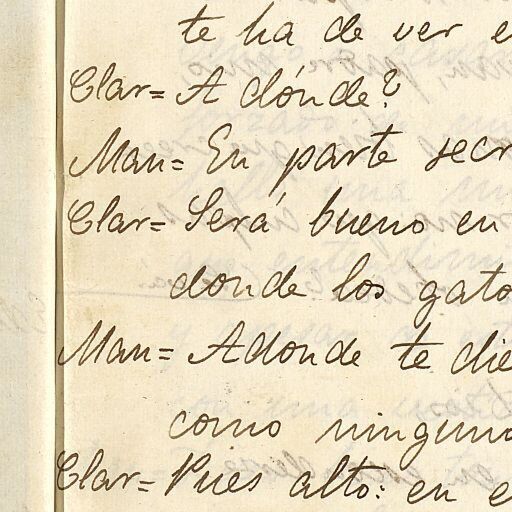 te ha de ver e
Clar= A dónde?
Man= En parte secr
Clar= Será bueno en
donde los gato
Man= Adonde te die
como ninguno
Clar= Pues alto: en e